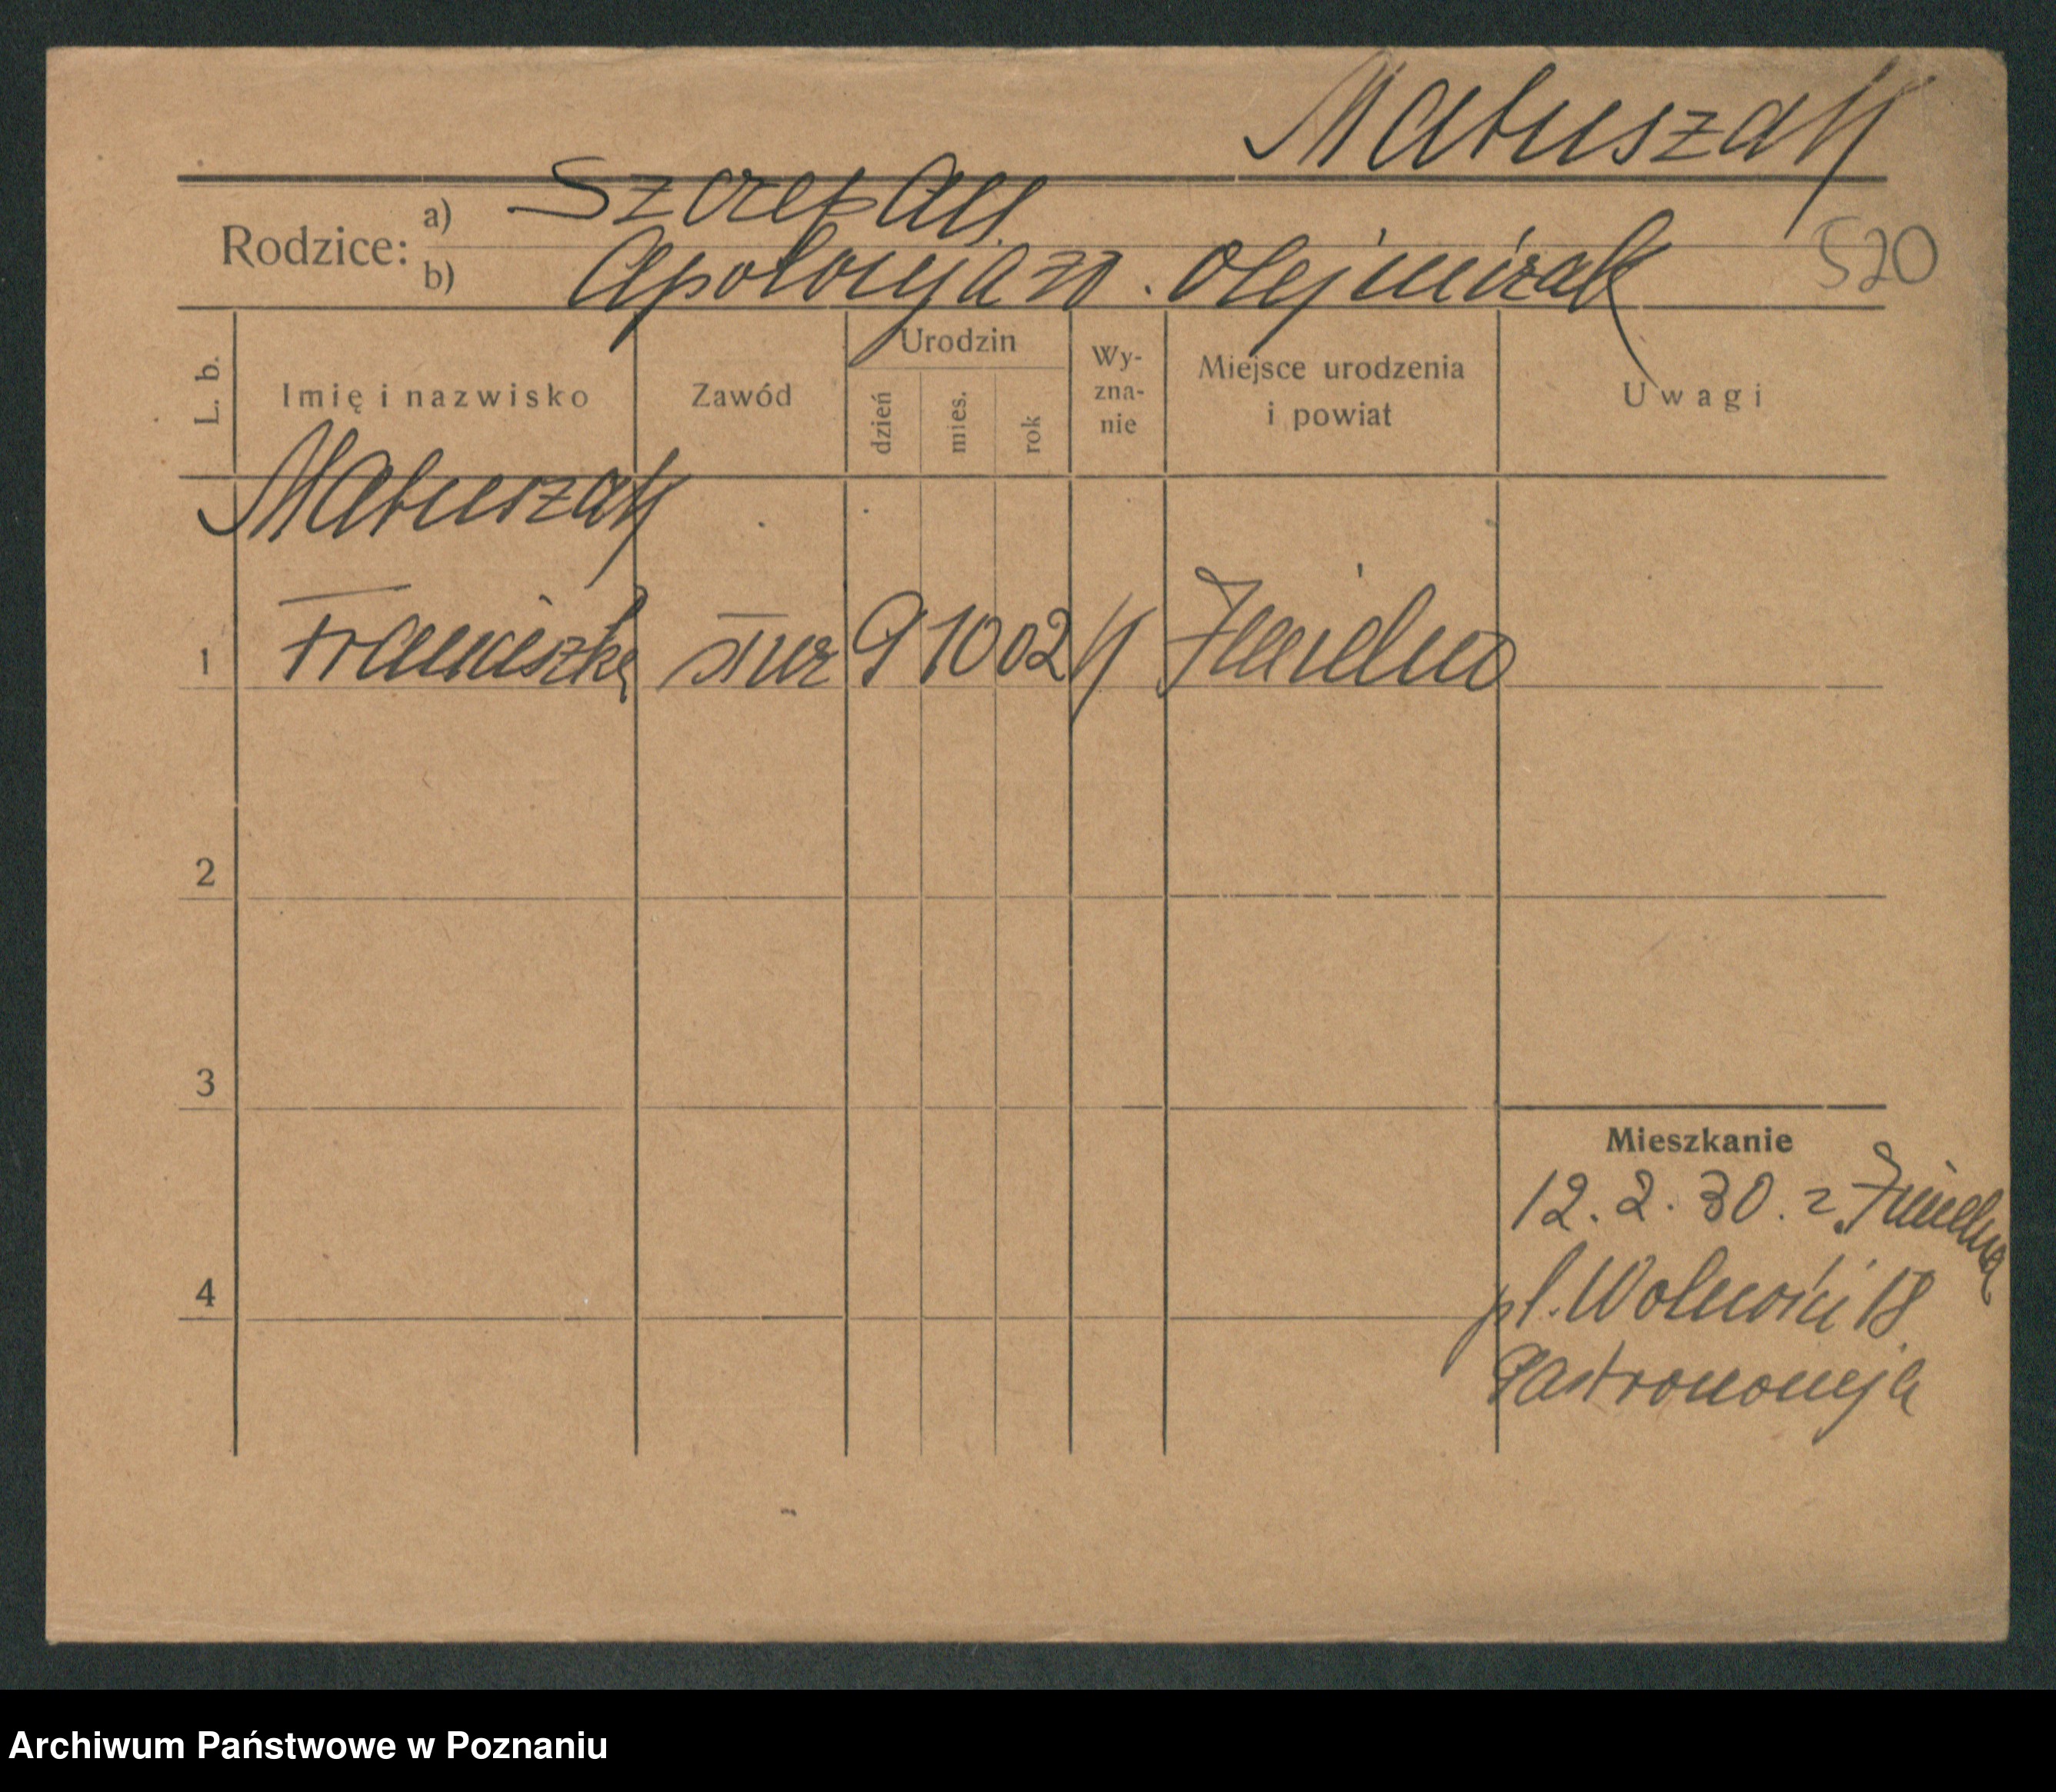 Matuszak
Rodzice: a) Szczepan
b) Apolonja z. Olejniczak
520
L. b.
Imię i nazwisko
Zawód
Urodzin
dzień
mies.
rok
Wy-
zna-
nie
Miejsce urodzenia
i powiat
Uwagi
Matuszak
1 Franciszka 9 10 02 K
2
3
Mieszkanie
12. 2. 30. z
4
pl. Wolności 18
Gastronomja
Archiwum Państwowe w Poznaniu